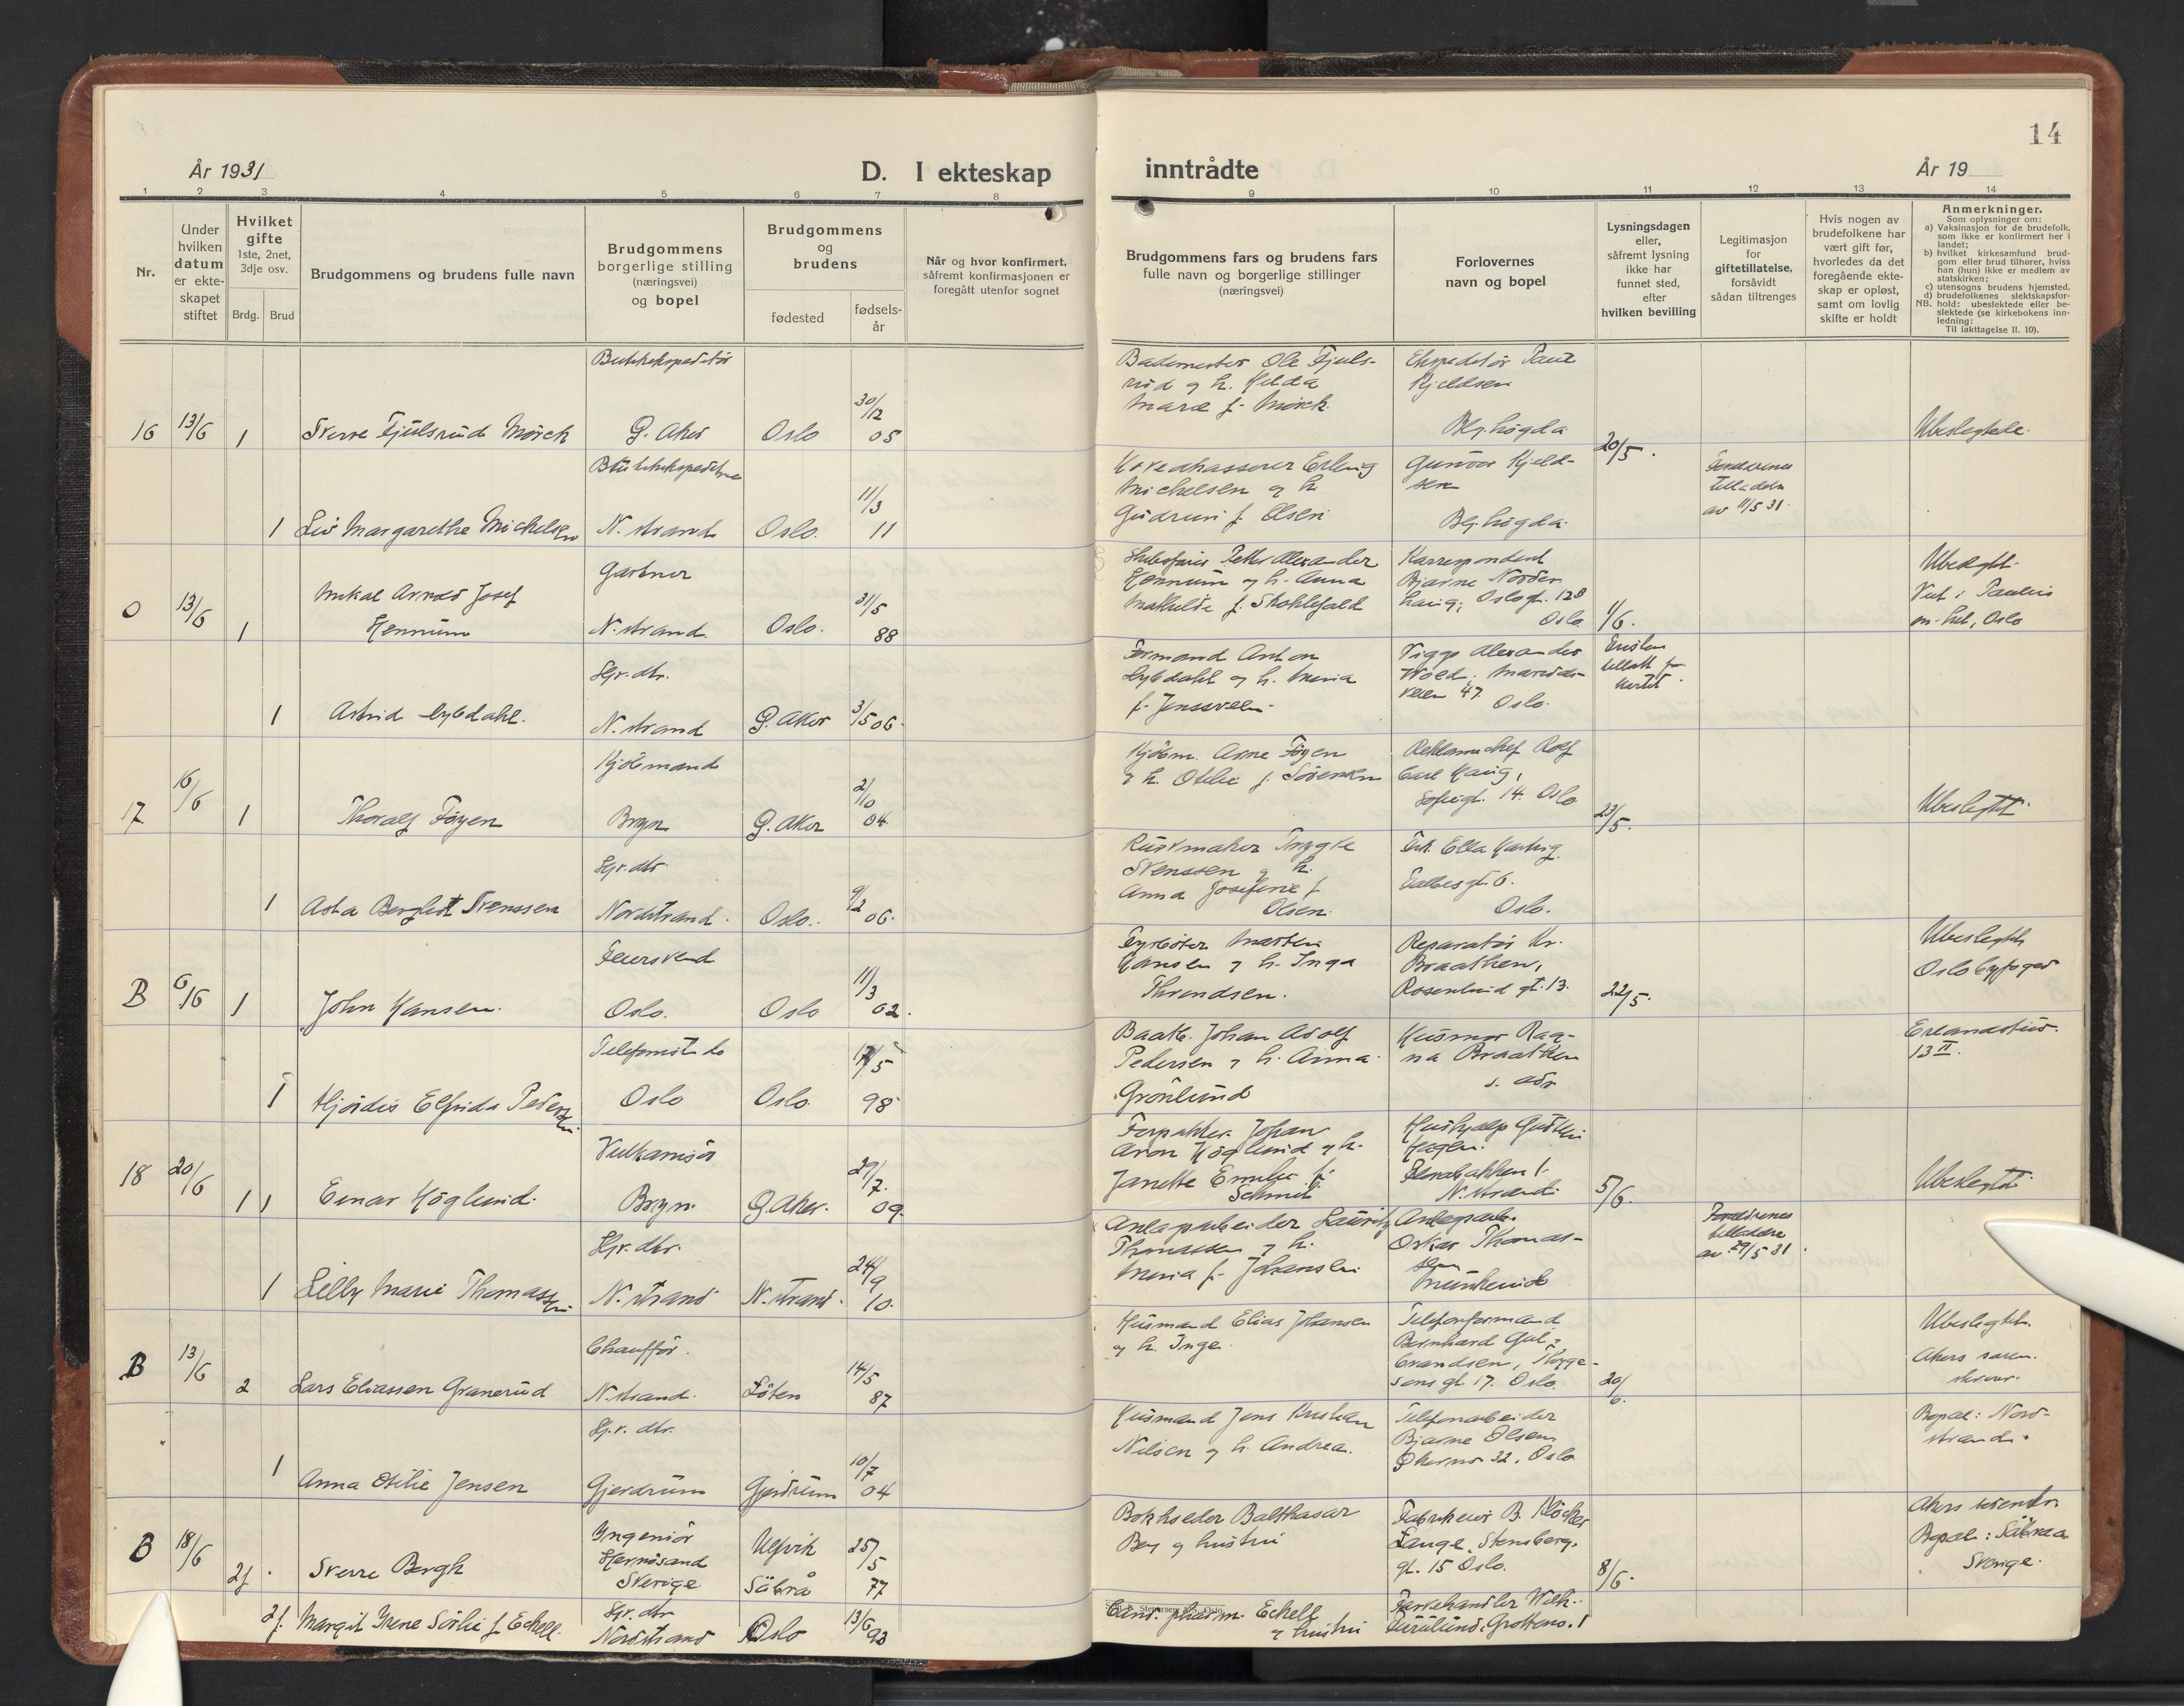 14
År 1931
D. I ekteskap
inntrådte
År 19
1 2 3 4 5 6 7 8 9 10 11 12 13 14
Nr.
Under
hvilken
datum
er ekte-
skapet
stiftet
Hvilket
gifte
1ste, 2net,
3dje osv.
Brdg. Brud
Brudgommens og brudens fulle navn
Brudgommens
borgerlige stilling
(næringsvei)
og bopel
Brudgommens
og
brudens
fødested
fødsels-
år
Når og hvor konfirmert,
såfremt konfirmasjonen er
foregått utenfor sognet
Brudgommens fars og brudens fars
fulle navn og borgerlige stillinger
(næringsvei)
Forlovernes
navn og bopel
Lysningsdagen
eller,
såfremt lysning
ikke har
funnet sted,
efter
hvilken bevilling
Legitimasjon
for
giftetillatelse,
forsåvidt
sådan tiltrenges
Hvis nogen av
brudefolkene har
vært gift før,
hvorledes da det
foregående ekte-
skap er opløst,
samt om lovlig
skifte er holdt
Anmerkninger.
Som oplysninger om:
a) Vaksinasjon for de brudefolk,
som ikke er konfirmert her i
landet;
b) hvilket kirkesamfund brud-
gom eller brud tilhører, hviss
han (hun) ikke er medlem av
statskirken;
c) utensogns brudens hjemsted.
d) brudefolkenes slektskapsfor-
NB. hold: ubeslektede eller be-
slektede (se kirkebokens inn-
ledning:
Til iakttagelse II. 10).
16 13/6 1 Sverre Fjulsrud Mörch
G. Aker Oslo 30/12 05
Bademester Ole Fjuls-
rud og h. Hilda
Marie f. Mörch
Kjeldsen
Bg.høgda
20/5.
Ubeslegtede.
1 Liv Margarethe Michelsen
N. strand Oslo. 11/3 11
Hovedkasserer Erling
Michelsen og h.
Gudrun f. Olsen
Gunvor Kjeld-
sen
Bg.høgda.
Foreldrenes
tilladelse
av 11/5 31.
0 13/6 1 Mikal Arnold Josef
Hennum
Gartner
N. strand. Oslo. 31/5 88
Petter Alexander
Hennum og h. Anna
Mathilde f.
Korrespondent
Bjarne Norder-
haug, Oslogt. 128
Oslo
1/6.
Oslo
1 Astrid Lybdahl.
Hjr. dtr.
N. strand G. Aker 3/5 06.
Formand Anton
Lybdahl og h. Maria
Viggo Alexander
Wold, Maridals-
veien 47. Oslo.
17 16/6 1 Thoralf Föyen
Kjöbmand
Bryn G. Aker 2/10 04
Kjöbm. Arne Föyen
og h. Otilie f. Sörensen
Reklamechef Rolf
Carl Haug,
Sofiegt. 14. Oslo
23/5.
Ubeslegtet.
1 Asta Bergliot Svenssen
Hjr. dtr.
Nordstrand. Oslo. 9/2 06.
Trygve
Svenssen og h.
Anna Josefine f.
Olsen.
Frk. Ella
Oslo.
B 6/6 1 John Hansen.
Feiersvend
Oslo. Oslo 11/3 02.
Fyrböter Martin
Hansen og h. Inga
Throndsen.
Reparatör Kr.
Braathen,
Rosenlund gt. 13.
22/5.
Ubeslegtet
Oslo byfoged
1 Hjördis Elfrida Pedersen
Oslo Oslo 17/5 98
Baatb. Johan Adolf
Pedersen og h. Anna
Grönlund
Husmor Rag-
na Braathen
s. adr
13 II.
18 20/6 1 1 Einar Höglund.
Vulkanisör
Bryn. G. Aker. 29/7. 09.
Johan
Aron Höglund og h.
Janette Emilie f.
Hushjælp
N. strand.
5/6.
Ubeslegtet
1 Lilly Marie Thomassen
Hjr. dtr.
N. strand N. strand. 24/9 10.
Anlægsarbeider Lauritz
Thomassen og h.
Maria f. Johansen
Anlægsarb.
Oskar Thomas-
sen
Foreldrenes
tilladelse
av 29/5 31.
B 13/6 2 Lars Eliassen Granerud
Chauffør.
N. strand. Löten 14/5 87
Husmand Elias Johansen
og h. Inge
Telefonformand
Bernhard Gul-
brandsen, Thyge-
sons gt. 17. Oslo.
20/6.
Ubeslegtet.
Akers soren-
skriver.
1 Anna Otilie Jensen
Hjr. dtr.
Gjerdrum Gjerdrum 10/7 04
Husmand Jens Kristian
Nilsen og h. Andrea.
Telefonarbeider
Bjarne Olsen
32. Oslo
Bopæl: Nord-
strand.
B 18/6 2f. Sverre Bergh
Ingeniör
Hernösand
Sverige
Ulfvik
Säbrå
25/5 77
Bokholder Balthasar
Berg og hustru
B. Klöcker
Lange, Stensberg-
gt. 15 Oslo.
8/6.
Bopæl: Säbraa
Sverige.
2f. Margit Irene Sörlie f. Eckell.
Hjr. dtr
Nordstrand Oslo 13/6 93
Cand. pharm. Eckell
og hustru
Farvehandler Wilh.